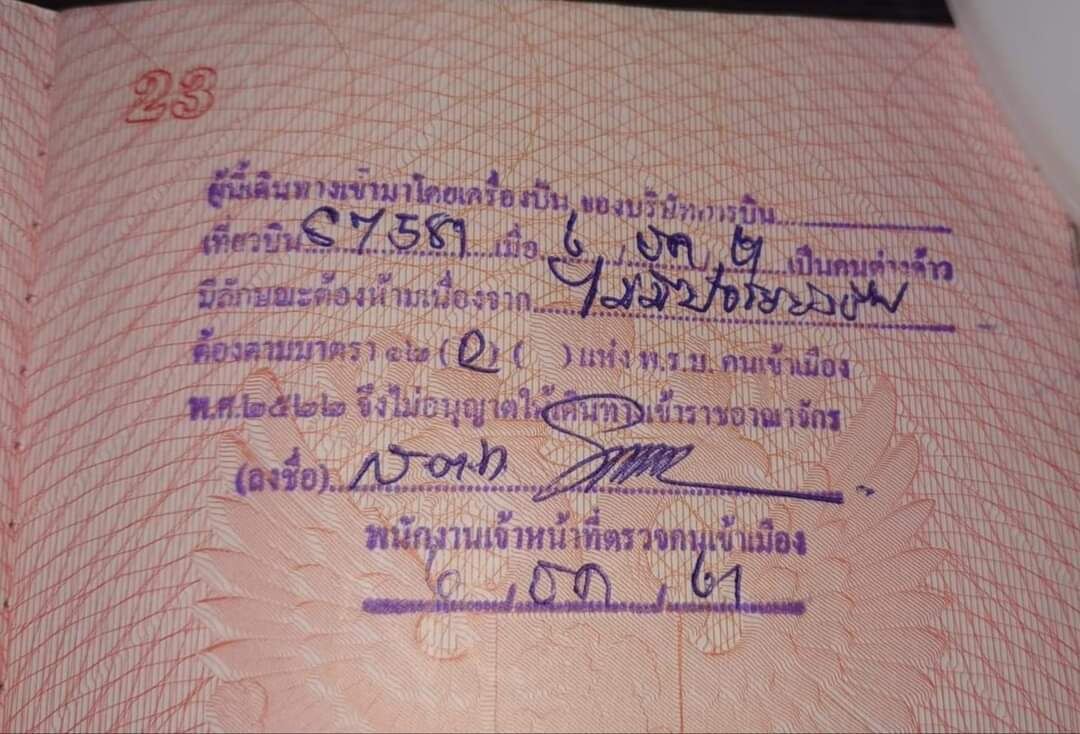 23
ผู้นี้เดินทางเข้ามาโดยเครื่องบิน ของบริษัทการบิน
เที่ยวบิน S7 581 เมื่อ ธค เป็นคนต่างด้าว
มีลักษณะต้องห้ามเนื่องจาก ไม่มีปัจจัยยังชีพ
ต้องตามมาตรา ๑๒ (๒) ( ) แห่ง พ.ร.บ. คนเข้าเมือง
พ.ศ.๒๕๒๒ จึงไม่อนุญาตให้เดินทางเข้าราชอาณาจักร
(ลงชื่อ)
พนักงานเจ้าหน้าที่ตรวจคนเข้าเมือง
ธค